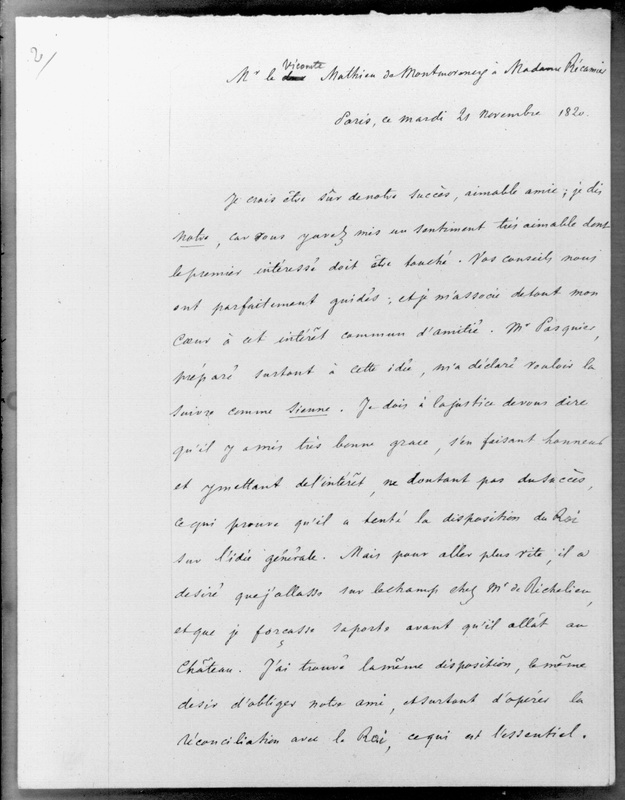 2/
Mr le Vicomte Mathieu de Montmorency à Madame Récamier
Paris, ce mardi 21 novembre 1820.
Je crois être sûr de notre succès, aimable amie ; je dis
notre, car vous y avez mis un sentiment très aimable dont
le premier intéressé doit être touché. Vos conseils nous
ont parfaitement guidés ; et je m'associe de tout mon
cœur à cet intérêt commun d'amitié. Mr Pasquier,
préparé surtout à cette idée, m'a déclaré vouloir la
suivre comme sienne. Je dois à la justice de vous dire
qu'il y a mis très bonne grace, s'en faisant honneur
et y mettant de l'intérêt, ne doutant pas du succès,
ce qui prouve qu'il a tenté la disposition du Roi
sur l'idée générale. Mais pour aller plus vite, il a
desiré que j'allasse sur le champ chez Mr de Richelieu,
et que je forçasse sa porte avant qu'il allât au
Château. J'ai trouvé la même disposition, le même
desir d'obliger notre ami, et surtout d'opérer la
réconciliation avec le Roi, ce qui est l'essentiel.